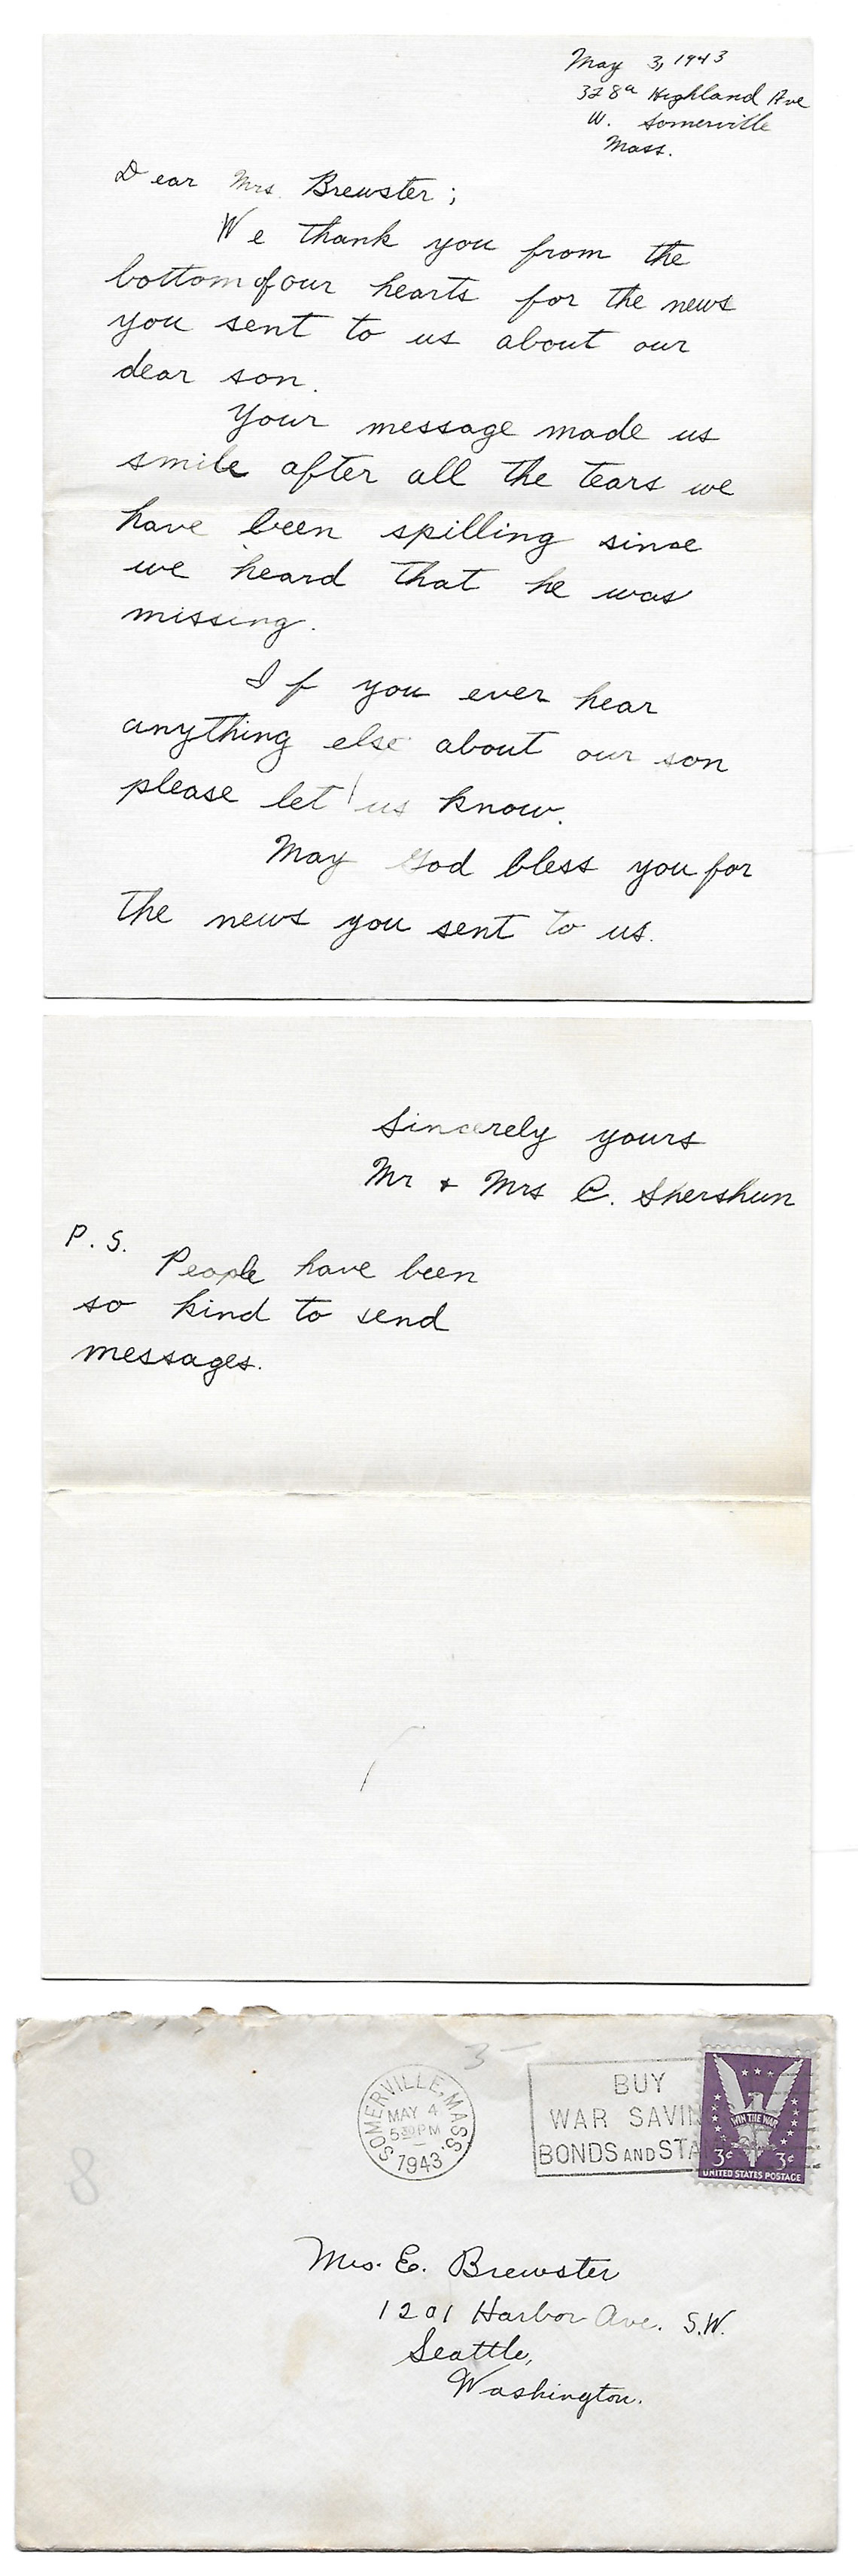 May 3, 1943
328a Highland Ave
W. Somerville
Mass.
Dear Mrs. Brewster;
We thank you from the
bottom of our hearts for the news
you sent to us about our
dear son.
Your message made us
smile after all the tears we
have been spilling since
we heard that he was
missing.
If you ever hear
anything else about our son
please let us know.
May God bless you for
the news you sent to us.
Sincerely yours
Mr + Mrs C. Shershun
P.S.
People have been
so kind to send
messages.
3
SOMERVILLE, MASS.
MAY 4
530PM
1943
BUY
WAR SAVIN
BONDS AND STA
WIN THE WAR
3¢ 3¢
UNITED STATES POSTAGE
Mrs. E. Brewster
1201 Harbor Ave. S.W.
Seattle,
Washington.